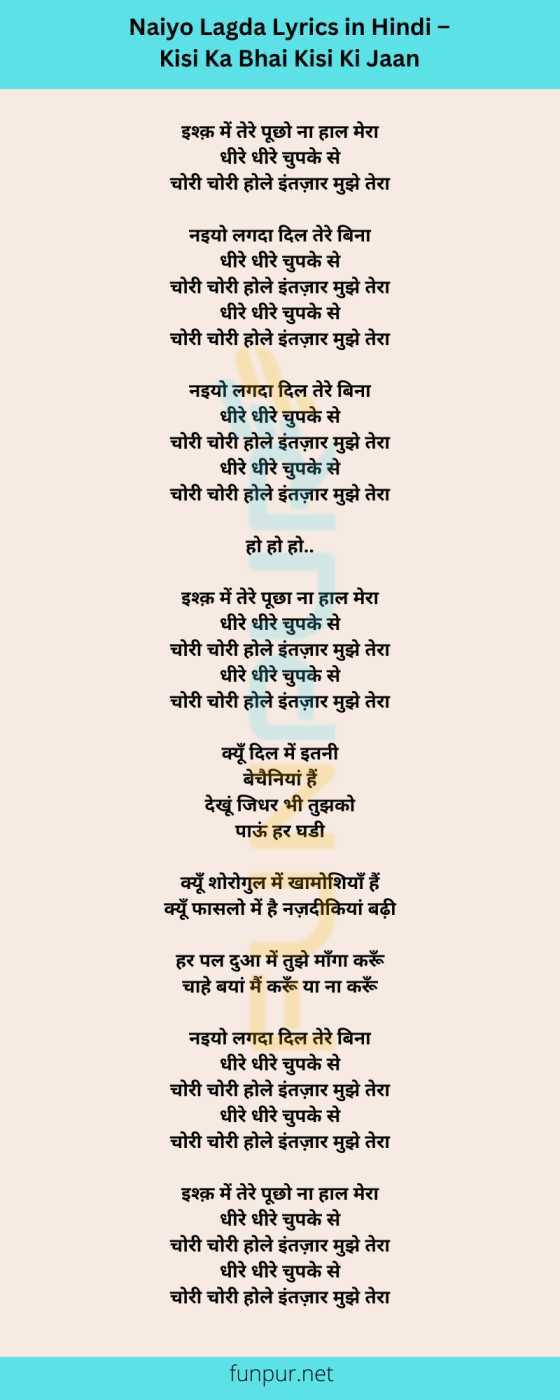 Naiyo Lagda Lyrics in Hindi –
Kisi Ka Bhai Kisi Ki Jaan
इश्क़ में तेरे पूछो ना हाल मेरा
धीरे धीरे चुपके से
चोरी चोरी होले इंतज़ार मुझे तेरा
नइयो लगदा दिल तेरे बिना
धीरे धीरे चुपके से
चोरी चोरी होले इंतज़ार मुझे तेरा
धीरे धीरे चुपके से
चोरी चोरी होले इंतज़ार मुझे तेरा
नइयो लगदा दिल तेरे बिना
धीरे धीरे चुपके से
चोरी चोरी होले इंतज़ार मुझे तेरा
धीरे धीरे चुपके से
चोरी चोरी होले इंतज़ार मुझे तेरा
हो हो हो..
इश्क़ में तेरे पूछा ना हाल मेरा
धीरे धीरे चुपके से
चोरी चोरी होले इंतज़ार मुझे तेरा
धीरे धीरे चुपके से
चोरी चोरी होले इंतज़ार मुझे तेरा
क्यूँ दिल में इतनी
बेचैनियां हैं
देखूं जिधर भी तुझको
पाऊं हर घडी
क्यूँ शोरोगुल में खामोशियाँ हैं
क्यूँ फासलो में है नज़दीकियां बढ़ी
हर पल दुआ में तुझे माँगा करूँ
चाहे बयां मैं करूँ या ना करूँ
नइयो लगदा दिल तेरे बिना
धीरे धीरे चुपके से
चोरी चोरी होले इंतज़ार मुझे तेरा
धीरे धीरे चुपके से
चोरी चोरी होले इंतज़ार मुझे तेरा
इश्क़ में तेरे पूछो ना हाल मेरा
धीरे धीरे चुपके से
चोरी चोरी होले इंतज़ार मुझे तेरा
धीरे धीरे चुपके से
चोरी चोरी होले इंतज़ार मुझे तेरा
FUNPUR
funpur.net